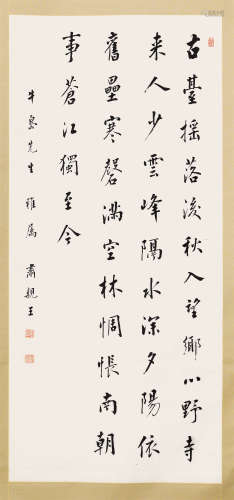 古臺摇落後秋入望鄉心野寺
来人少雲峰隔水深夕陽依
舊壘寒磬滿空林惆悵南朝
事蒼江獨至今
牛島先生雅属 肅親王